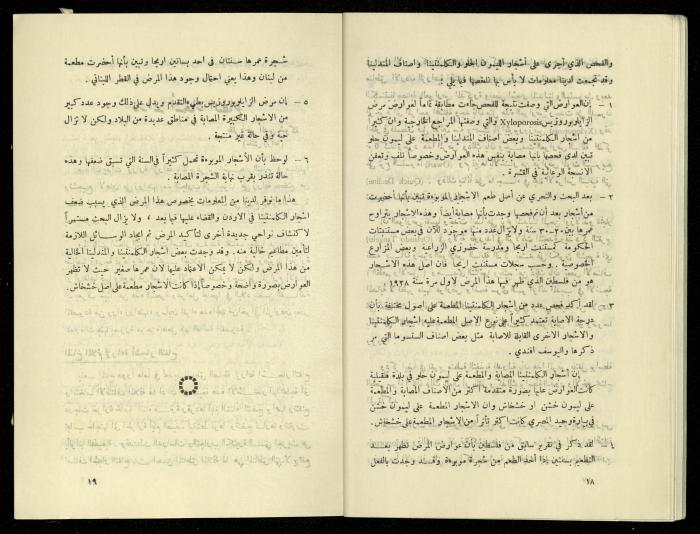 والفحص الذي أجري على أشجار الليمون الحلو والكلمنتينا وأصناف المندلينا
وقد تجمعت لدينا معلومات لا بأس بها نلخصها فيما يلي :
١ – إن العوارض التي وصفت نتيجة للفحص جاءت مطابقة تماماً لعوارض مرض
الزايلوبوروزيس Xyloporosis والتي وصفتها المراجع الخارجية وان كثير
من أشجار الكلمنتينا وبعض أصناف المندلينا والمطعمة على ليمون حلو
تبين لدى فحصها بأنها مصابة بنفس هذه العوارض وخصوصاً تلف وتعفن
الانسجة الوعائية في القشرة .
٢ – بعد البحث والتحري عن أصل طعم الاشجار الموبوءة تبين بأنها أحضرت
من أشجار بعد أن تم فحصها وجدت بأنها مصابة أيضاً وهذه الاشجار يتراوح
عمرها بين ٢٠–٣٠ سنة ولا تزال عدد منها موجود للآن في بعض مستنبتات
الحكومة كمستنبت أريحا ومدرسة خضوري الزراعية وبعض المزارع
الخصوصية . وحسب سجلات مستنبت أريحا فان اصل هذه الاشجار
هو من فلسطين الذي ظهر فيها هذا المرض لاول مرة سنة ١٩٢٨
٣ – لقد أكد فحص عدد من أشجار الكلمنتينا المطعمة على اصول مختلفة بأن
درجة الاصابة تعتمد كثيراً على نوع الاصل المطعمة عليه اشجار الكلمنتينا
والاشجار الاخرى القابلة للاصابة مثل بعض اصناف السلسوما التي مر
ذكرها واليوسف أفندي .
إن أشجار الكلمنتينا المصابة والمطعمة على ليمون حلو في بلدة قلقيلية
كانت العوارض عليها بصورة متقدمة أكثر من الأصناف المصابة والمطعمة
على ليمون خشن او خشخاش وان الاشجار المطعمة على ليمون خشن
في بيارة وحيد المصري كانت أكثر تأثراً من الاشجار المطعمة على خشخاش .
٤ – لقد ذكر في تقرير سابق من فلسطين بأن عوارض المرض تظهر بعد
التطعيم بسنتين إذا أخذ الطعم من شجرة موبوءة وقد وجدت بالفعل
١٨
شجرة عمرها سنتان في احد بساتين اريحا وتبين بأنها أحضرت مطعمة
من لبنان وهذا يعني احتمال وجود هذا المرض في القطر اللبناني .
٥ – إن مرض الزايلوبوروزيس بطيء التقدم ويدل على ذلك وجود عدد كبير
من الاشجار الكبيرة المصابة في مناطق عديدة من البلاد ولكن لا تزال
حية وفي حالة غير منتجة .
٦ – لوحظ بأن الأشجار الموبوءة تحمل كثيراً في السنة التي تسبق ضعفها وهذه
حالة تنذر بقرب نهاية الشجرة المصابة .
هذا ما توفر لدينا من المعلومات بخصوص هذا المرض الذي يسبب ضعف
اشجار الكلمنتينا في الاردن والقضاء عليها فيما بعد ، ولا يزال البحث مستمراً
لاكتشاف نواحي جديدة أخرى لتأكيد المرض ثم ايجاد الوسائل اللازمة
لتأمين مطاعيم خالية منه . وقد وجدت بعض أشجار الكلمنتينا والمندلينا الخالية
من هذا المرض ولكن لا يمكن الاعتماد عليها لان عمرها صغير حيث لا تظهر
العوارض بصورة واضحة وخصوصاً إذا كانت الاشجار مطعمة على اصل خشخاش .
١٩